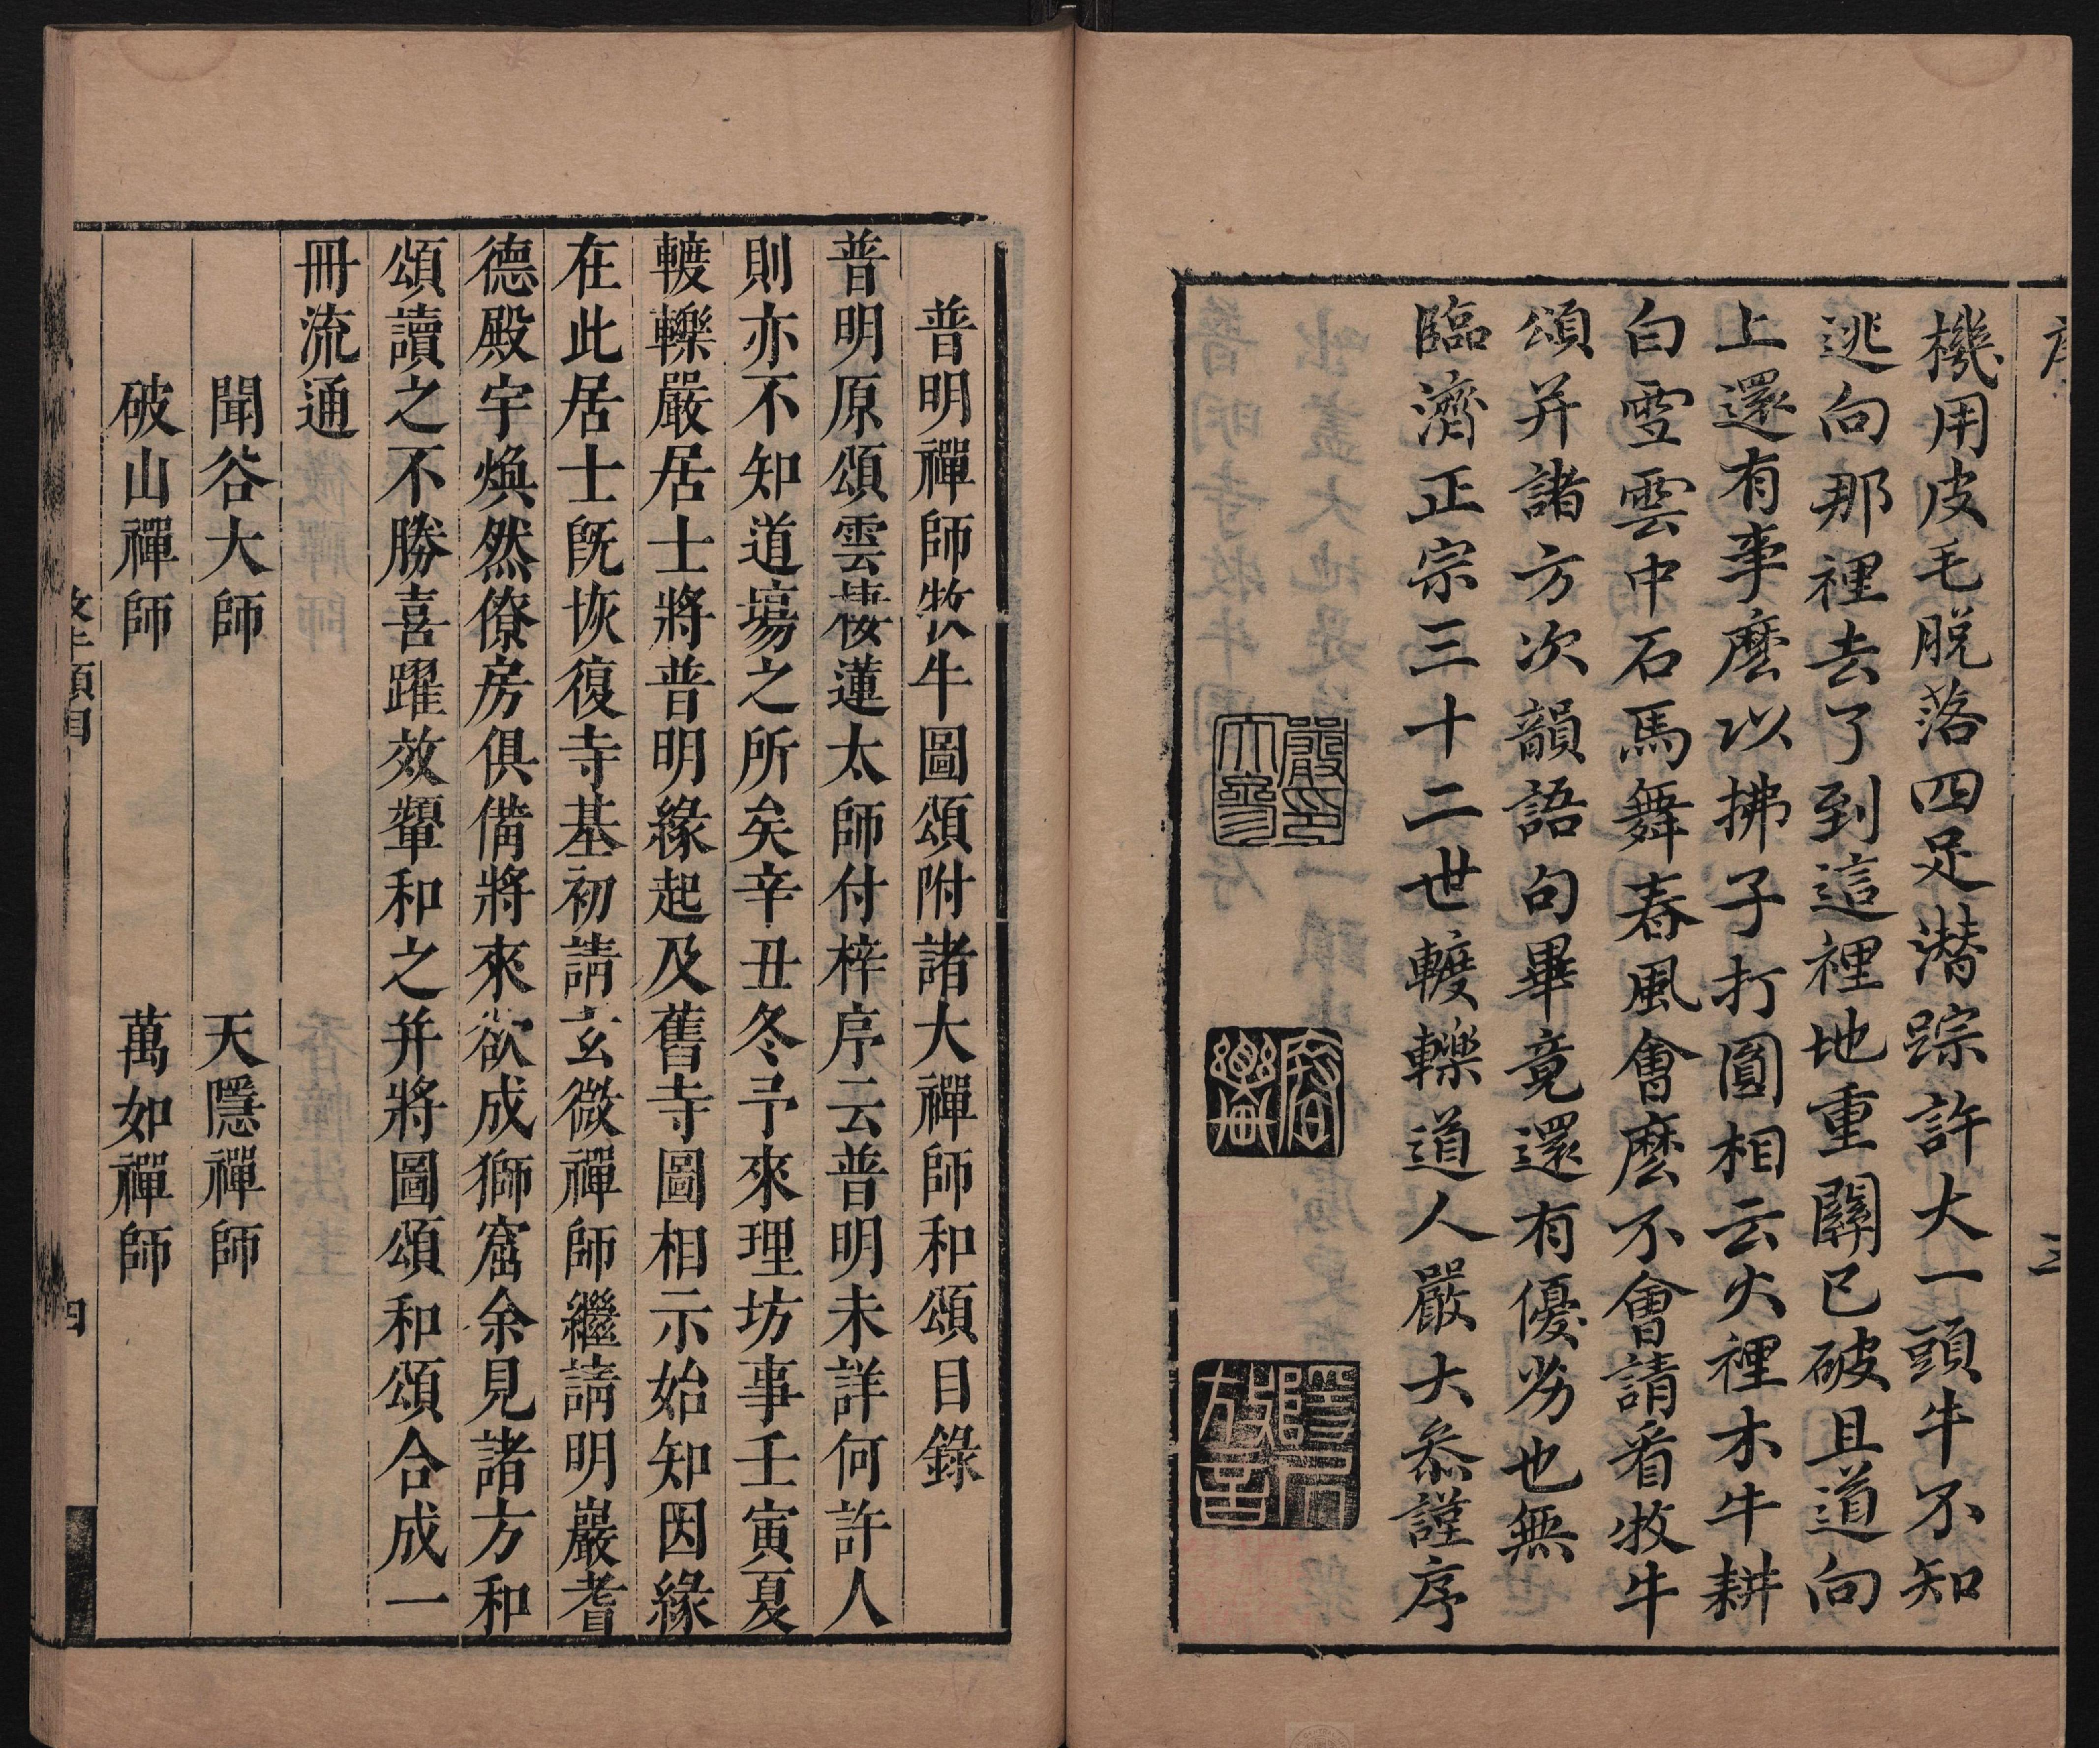 機用皮毛脫落四足潜踪許大一頭牛不知
逃向那裡去了到這裡地重關已破且道向
上還有事麽以拂子打圓相云火裡木牛耕
白雪雲中石馬舞春風會麽不會請看牧牛
頌并諸方次韻語句畢竟還有優劣也無
臨濟正宗三十二世轆轢道人嚴大叅謹序
普明禪師牧牛圖頌附諸大禪師和頌目錄
普明原頌雲棲蓮太師付梓序云普明未詳何許人
則亦不知道塲之所矣辛丑冬予來理坊事壬寅夏
轆轢嚴居士將普明緣起及舊寺圖相示始知因緣
在此居士旣恢復寺基初請玄微禪師繼請明巖耆
德殿宇煥然僚房俱備將來欲成獅窟余見諸方和
頌讀之不勝喜躍效顰和之并將圖頌和頌合成一
冊流通
聞谷大師 天隱禪師
破山禪師 萬如禪師
四